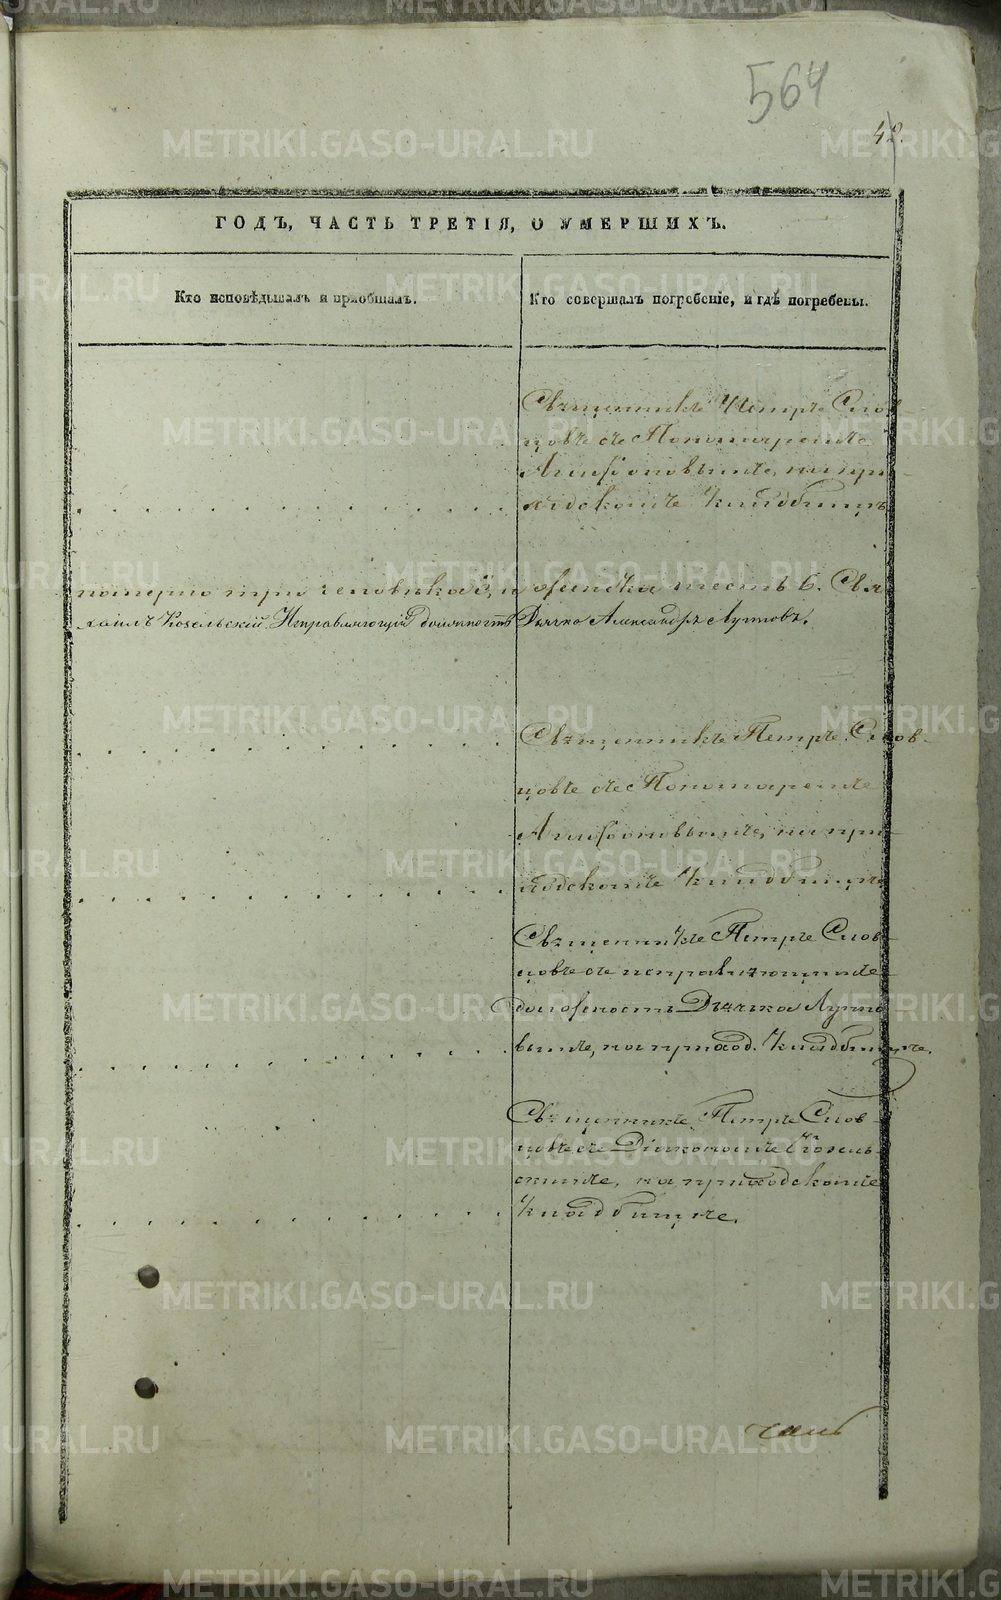 564
42
ГОДЪ, ЧАСТЬ ТРЕТІЯ, О УМЕРШИХЪ.
Кто исповѣдывалъ и пріобщалъ.
Кто совершалъ погребеніе, и гдѣ погребены.
Священникъ Петръ Слов-
цовъ съ Пономаремъ
Агафоновымъ, на при-
ходскомъ кладбищѣ
померло три человѣка, и женска шесть 6. Свя
хаилъ Козельскій. Исправляющій должность Дьячка Александръ Лупповъ.
Священникъ Петръ Слов-
цовъ съ Пономаремъ
Агафоновымъ, на при-
ходскомъ кладбищѣ
Священникъ Петръ Слов-
цовъ съ исправляющимъ
должность Дьячка Луппо
вымъ, на приход. кладбищѣ.
Священникъ Петръ Слов-
цовъ съ Діакономъ Козель-
скимъ, на приходскомъ
кладбищѣ.
METRIKI.GASO-URAL.RU